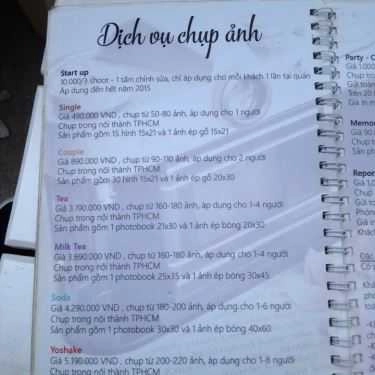 Dịch vụ chụp ảnh
Start up
10.000/3 shoot - 1 tấm chỉnh sửa, chỉ áp dụng cho mỗi khách 1 lần tại quán
Áp dụng đến hết năm 2015
Single
Giá 490.000 VND , chụp từ 50-80 ảnh, áp dụng cho 1 người
Chụp trong nội thành TPHCM
Sản phẩm gồm 15 hình 15x21 và 1 ảnh ép gỗ 15x21
Couple
Giá 890.000 VND , chụp từ 90-110 ảnh, áp dụng cho 2 người
Chụp trong nội thành TPHCM
Sản phẩm gồm 30 hình 15x21 và 1 ảnh ép gỗ 20x30
Tea
Giá 3.190.000 VND , chụp từ 160-180 ảnh, áp dụng cho 1-4 người
Chụp trong nội thành TPHCM
Sản phẩm gồm 1 photobook 21x30 và 1 ảnh ép bóng 20x30
Milk Tea
Giá 3.690.000 VND , chụp từ 160-180 ảnh, áp dụng cho 1-4 người
Chụp trong nội thành TPHCM
Sản phẩm gồm 1 photobook 25x35 và 1 ảnh ép bóng 30x45
Soda
Giá 4.290.000 VND , chụp từ 180-200 ảnh, áp dụng cho 1-6 người
Chụp trong nội thành TPHCM
Sản phẩm gồm 1 photobook 30x30 và 1 ảnh ép bóng 40x60
Yoshake
Giá 5.190.000 VND , chụp từ 200-220 ảnh, áp dụng cho 1-8 người
Chụp trong nội thành TPHCM
Party - C
Giá 1.000
Chụp tr
Trên 20
Giá in
Memo
Giá
Chụp
Report
Giá
Chụp
Gửi
Phóng
Gi
Khách
Có